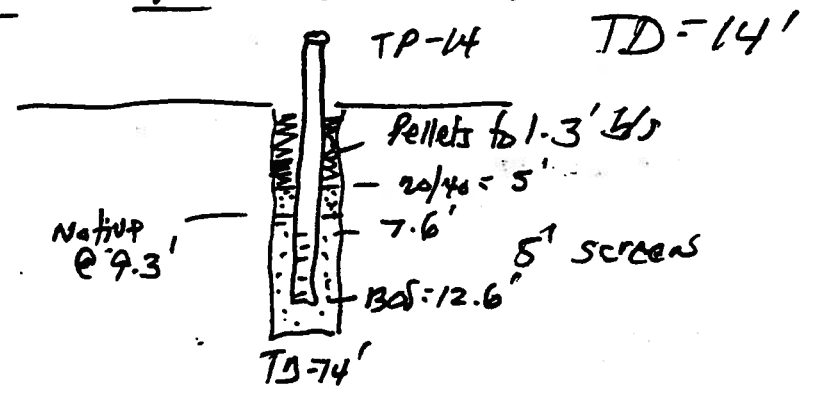 TP-14
TD=14'
Pellets to 1.3' b/s
20/40 = 5'
7.6'
Native
@ 9.3'
5' screen
BOS=12.6'
TD=14'